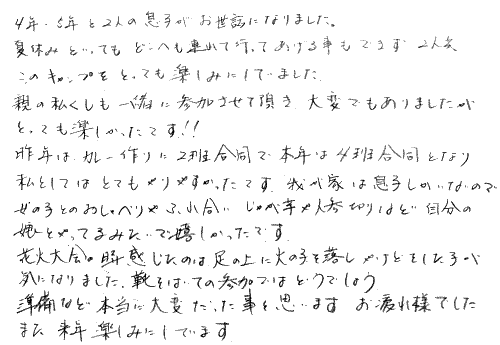 4年、5年と2人の息子がお世話になりました。
夏休みといっても どこへも連れて行ってあげる事もできず 2人共
このキャンプをとっても楽しみにしていました
親の私くしも一緒に参加させて頂き 大変でもありましたが
とっても楽しかったです!!
昨年は カレー作りに2班合同で 本年は4班合同となり
私としては とてもやりやすかったです 我が家は息子しかいないので
女の子とのおしゃべりや ふれ合い じゃが芋や人参切りなど 自分の
娘とやってるみたいで嬉しかったです
花火大会の時 感じたのは 足の上に火の子を落し やけどをした子が
気になりました 靴をはいての参加ではどうでしょう
準備など 本当に大変だった事と思います お疲れ様でした
また 来年 楽しみにしています